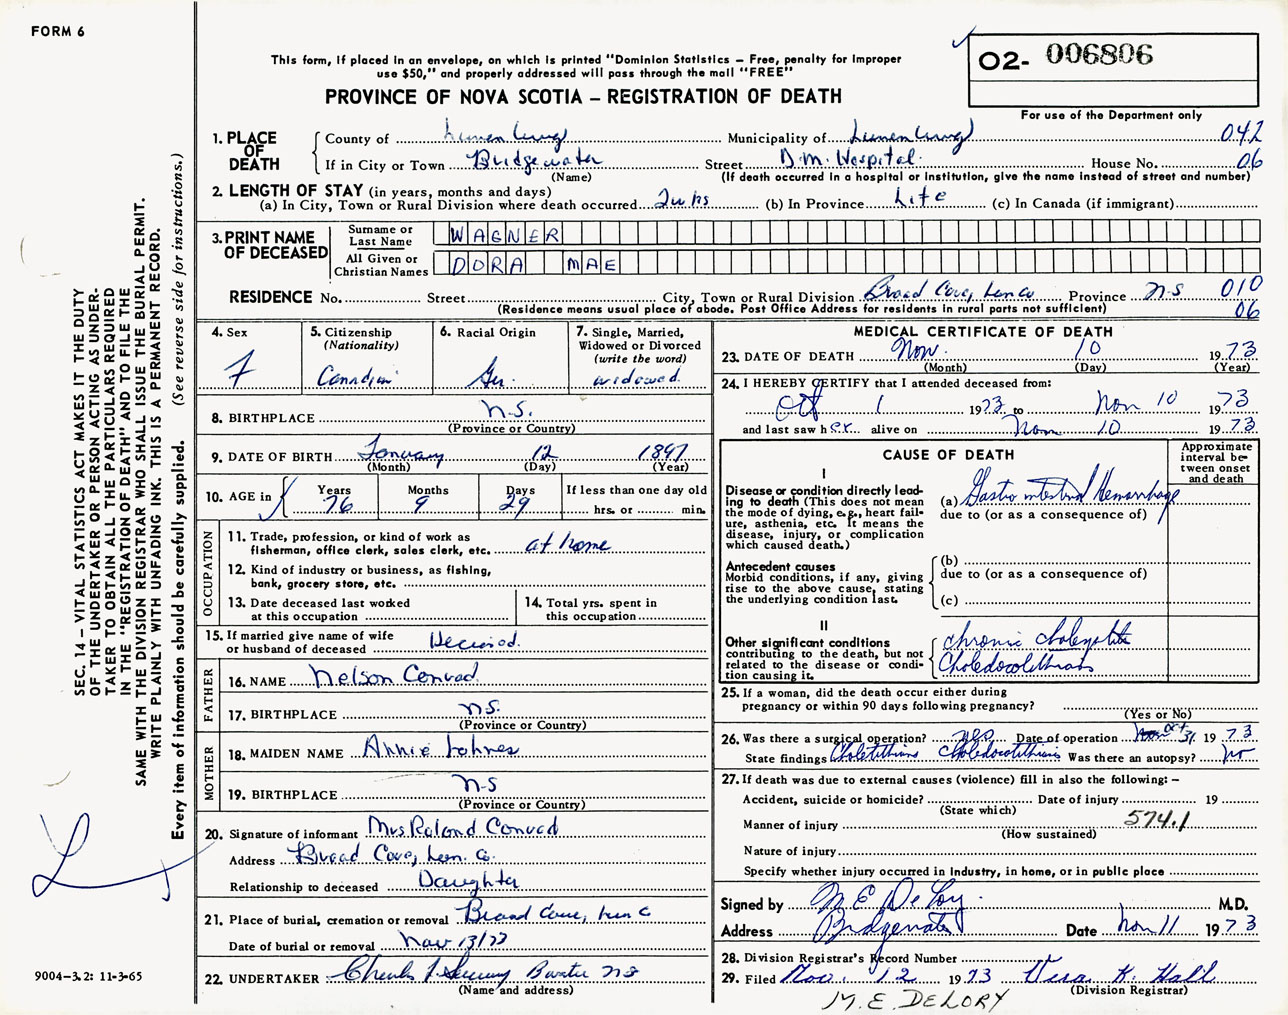 FORM 6
This form, if placed in an envelope, on which is printed "Dominion Statistics – Free, penalty for improper
use $50," and properly addressed will pass through the mail "FREE"
02- 006806
PROVINCE OF NOVA SCOTIA – REGISTRATION OF DEATH
For use of the Department only
1. PLACE OF DEATH
County of Lunenburg Municipality of Lunenburg 042
If in City or Town Bridgewater Street D.M. Hospital House No. 06
(Name) (If death occurred in a hospital or institution, give the name instead of street and number)
2. LENGTH OF STAY (in years, months and days)
(a) In City, Town or Rural Division where death occurred (b) In Province Life (c) In Canada (if immigrant)
3. PRINT NAME OF DECEASED
Surname or Last Name WAGNER
All Given or Christian Names DORA MAE
RESIDENCE No. Street City, Town or Rural Division Broad Cove, Lun Co Province N-S 010
(Residence means usual place of abode. Post Office Address for residents in rural parts not sufficient) 06
4. Sex F
5. Citizenship (Nationality) Canadian
6. Racial Origin Ger.
7. Single, Married, Widowed or Divorced (write the word) widowed
8. BIRTHPLACE N.S.
(Province or Country)
9. DATE OF BIRTH January 12 1897
(Month) (Day) (Year)
10. AGE in Years 76 Months 9 Days 29 If less than one day old
hrs. or min.
OCCUPATION
11. Trade, profession, or kind of work as
fisherman, office clerk, sales clerk, etc. at home
12. Kind of industry or business, as fishing,
bank, grocery store, etc.
13. Date deceased last worked
at this occupation
14. Total yrs. spent in
this occupation
15. If married give name of wife
or husband of deceased Deceased
FATHER
16. NAME Nelson Conrad
17. BIRTHPLACE N.S.
(Province or Country)
MOTHER
18. MAIDEN NAME Annie Lohnes
19. BIRTHPLACE N-S
(Province or Country)
20. Signature of informant Mrs Roland Conrad
Address Broad Cove, Lun. Co.
Relationship to deceased Daughter
21. Place of burial, cremation or removal Broad Cove, Lun C
Date of burial or removal Nov 13/73
22. UNDERTAKER
(Name and address)
MEDICAL CERTIFICATE OF DEATH
23. DATE OF DEATH Nov. 10 1973
(Month) (Day) (Year)
24. I HEREBY CERTIFY that I attended deceased from:
Oct 1 1973 to Nov 10 1973
and last saw her alive on Nov 10 1973
CAUSE OF DEATH
Approximate interval be-
tween onset
and death
I
Disease or condition directly lead-
ing to death (This does not mean
the mode of dying, e.g., heart fail-
ure, asthenia, etc. It means the
disease, injury, or complication
which caused death.)
(a) Gastro intestinal Hemorrhage
due to (or as a consequence of)
Antecedent causes
Morbid conditions, if any, giving
rise to the above cause, stating
the underlying condition last.
(b)
due to (or as a consequence of)
(c)
II
Other significant conditions
contributing to the death, but not
related to the disease or condi-
tion causing it.
chronic
25. If a woman, did the death occur either during
pregnancy or within 90 days following pregnancy?
(Yes or No)
26. Was there a surgical operation? yes Date of operation Oct 31 1973
State findings Was there an autopsy? no
27. If death was due to external causes (violence) fill in also the following: –
Accident, suicide or homicide? Date of injury 19
(State which)
Manner of injury 574.1
(How sustained)
Nature of injury
Specify whether injury occurred in industry, in home, or in public place
Signed by M E DeLory M.D.
Address Bridgewater Date Nov 11 1973
28. Division Registrar's Record Number
29. Filed Nov. 12 1973 Vera K. Hall
(Division Registrar)
M. E. DELORY
SEC. 14 – VITAL STATISTICS ACT MAKES IT THE DUTY
OF THE UNDERTAKER OR PERSON ACTING AS UNDER-
TAKER TO OBTAIN ALL THE PARTICULARS REQUIRED
IN THE "REGISTRATION OF DEATH" AND TO FILE THE
SAME WITH THE DIVISION REGISTRAR WHO SHALL ISSUE THE BURIAL PERMIT.
WRITE PLAINLY WITH UNFADING INK. THIS IS A PERMANENT RECORD.
Every item of information should be carefully supplied. (See reverse side for instructions.)
9004-3.2: 11-3-65